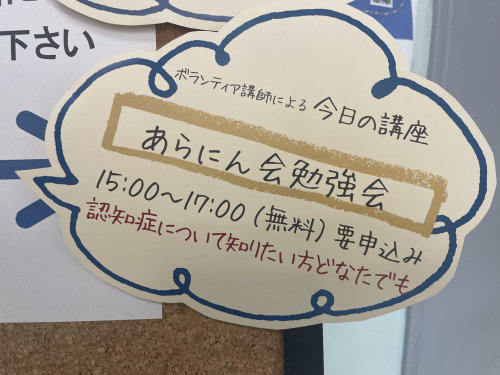 下さい
ボランティア講師による 今日の講座
あらにん会勉強会
15:00～17:00 (無料) 要申込み
認知症について知りたい方どなたでも